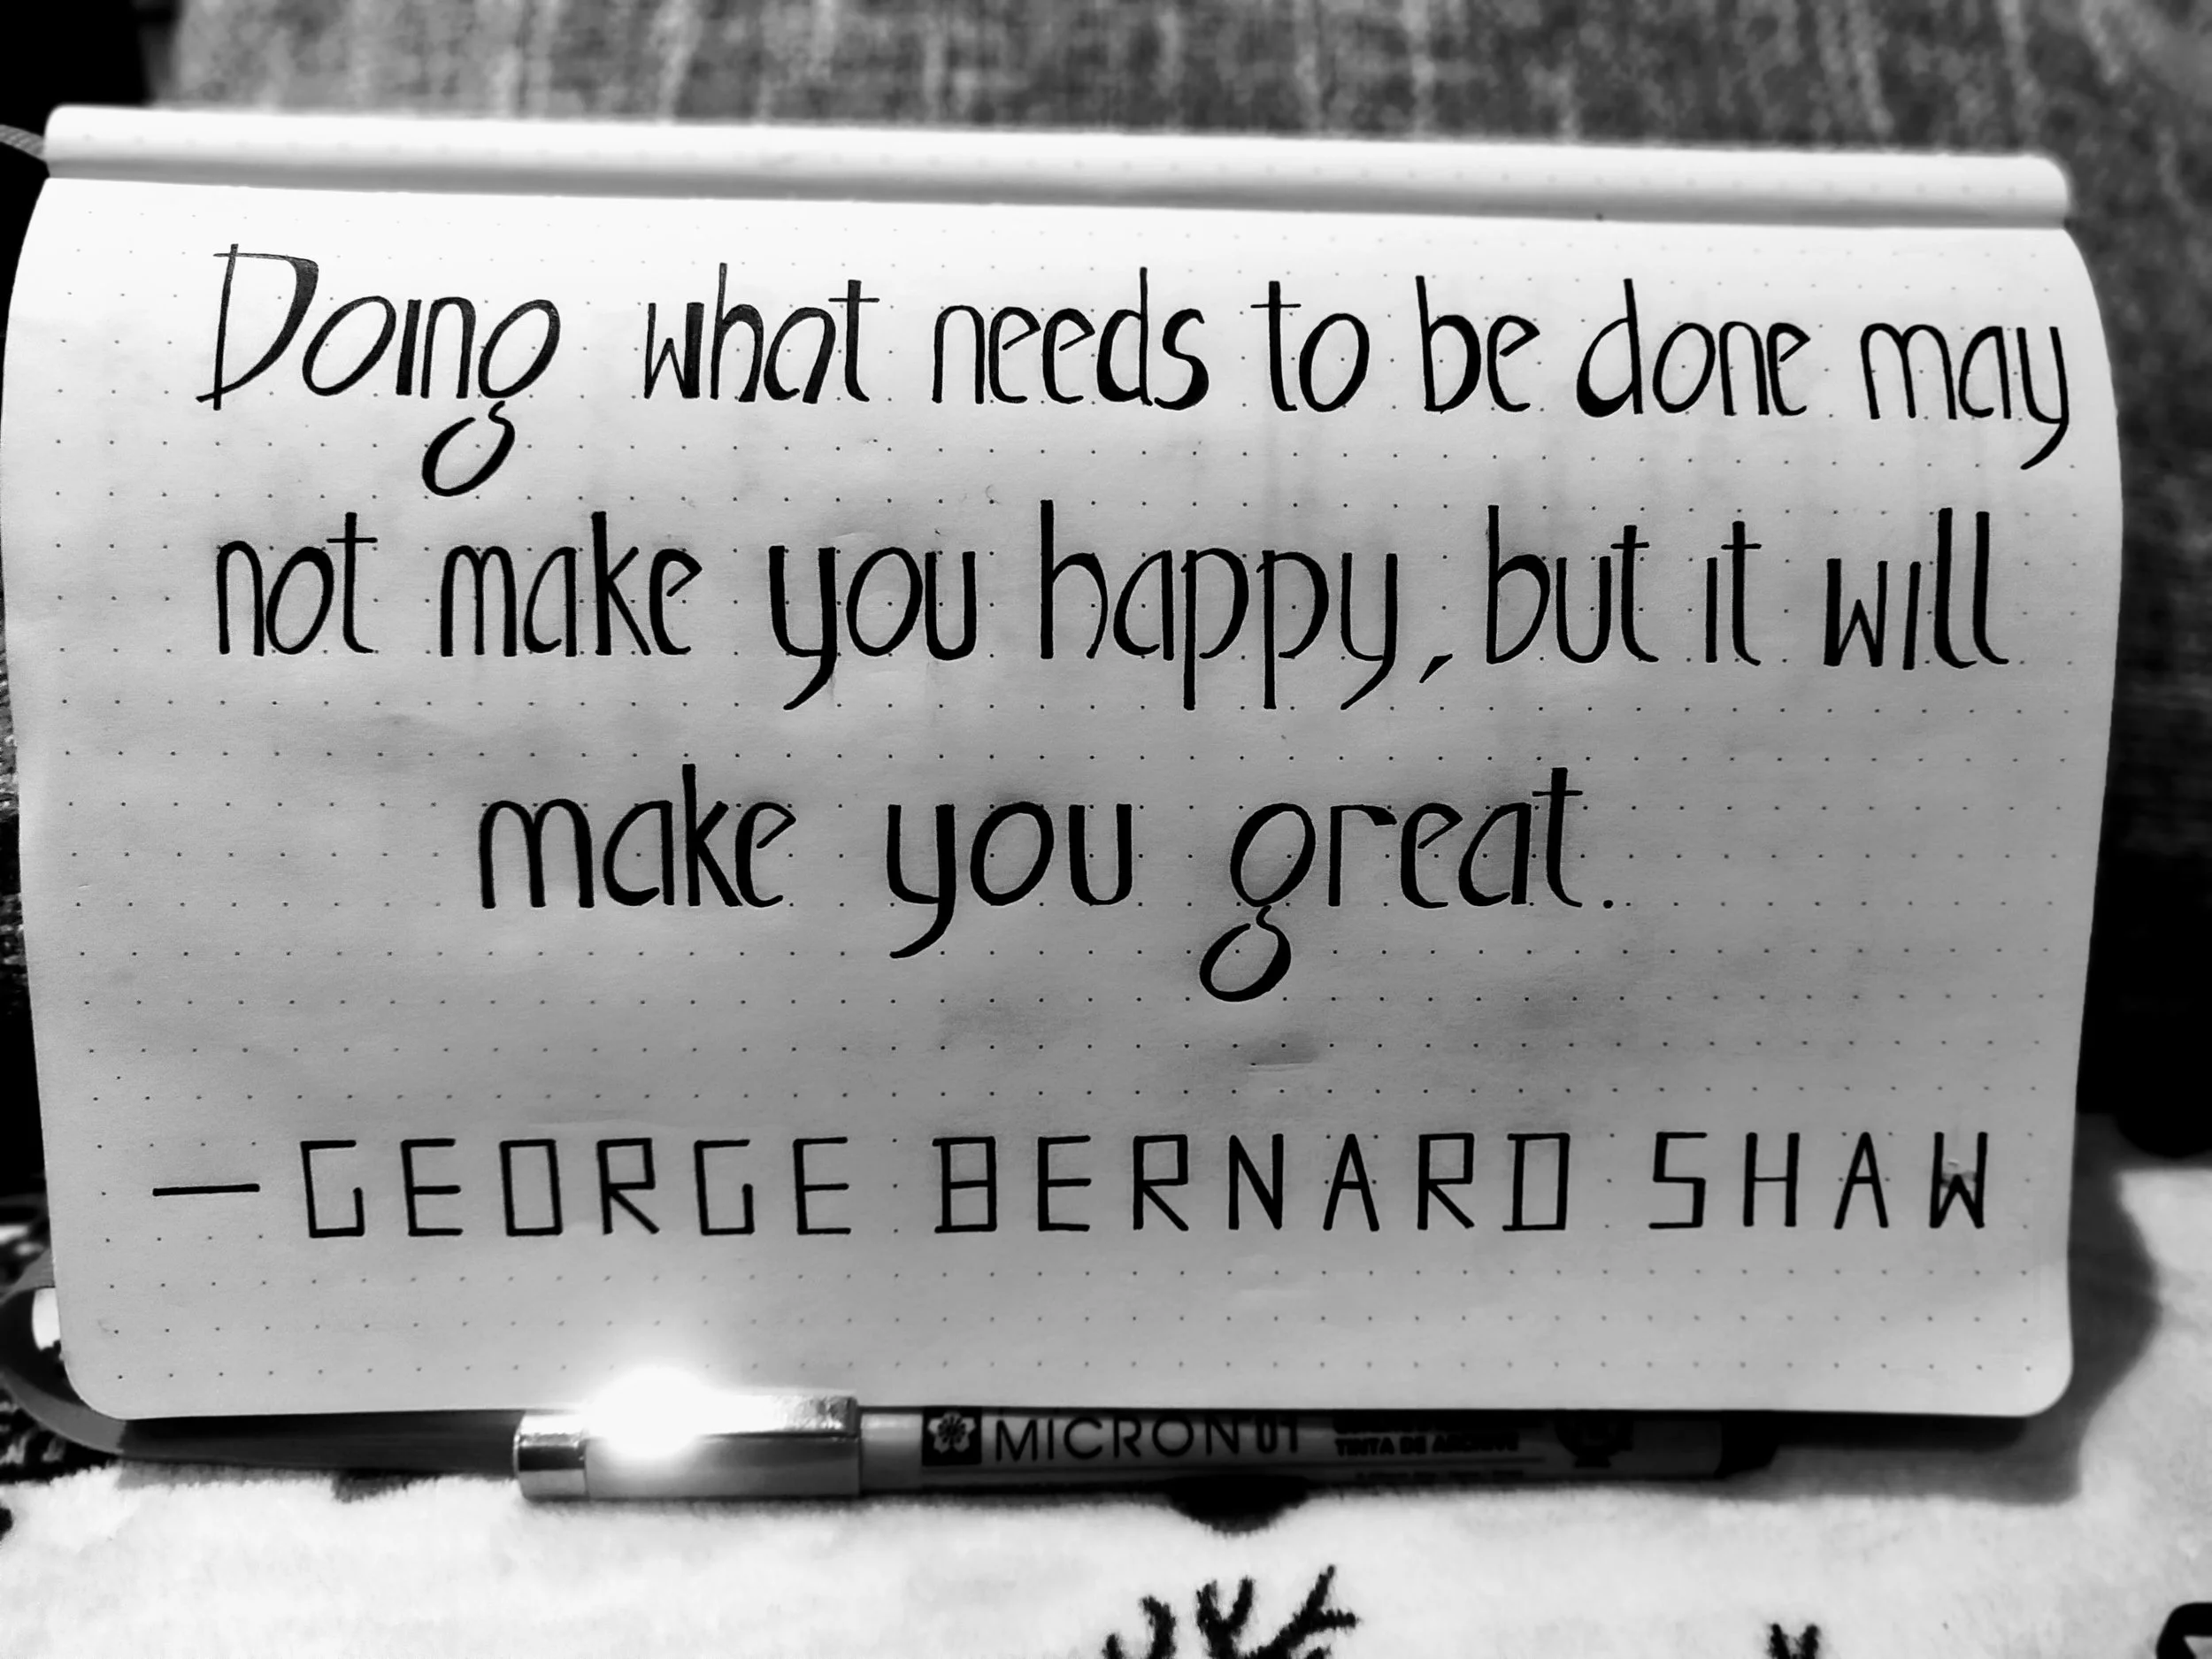 Doing what needs to be done may
not make you happy, but it will
make you great.
— GEORGE BERNARD SHAW
MICRON 01
TINTA DE ARCHIVO